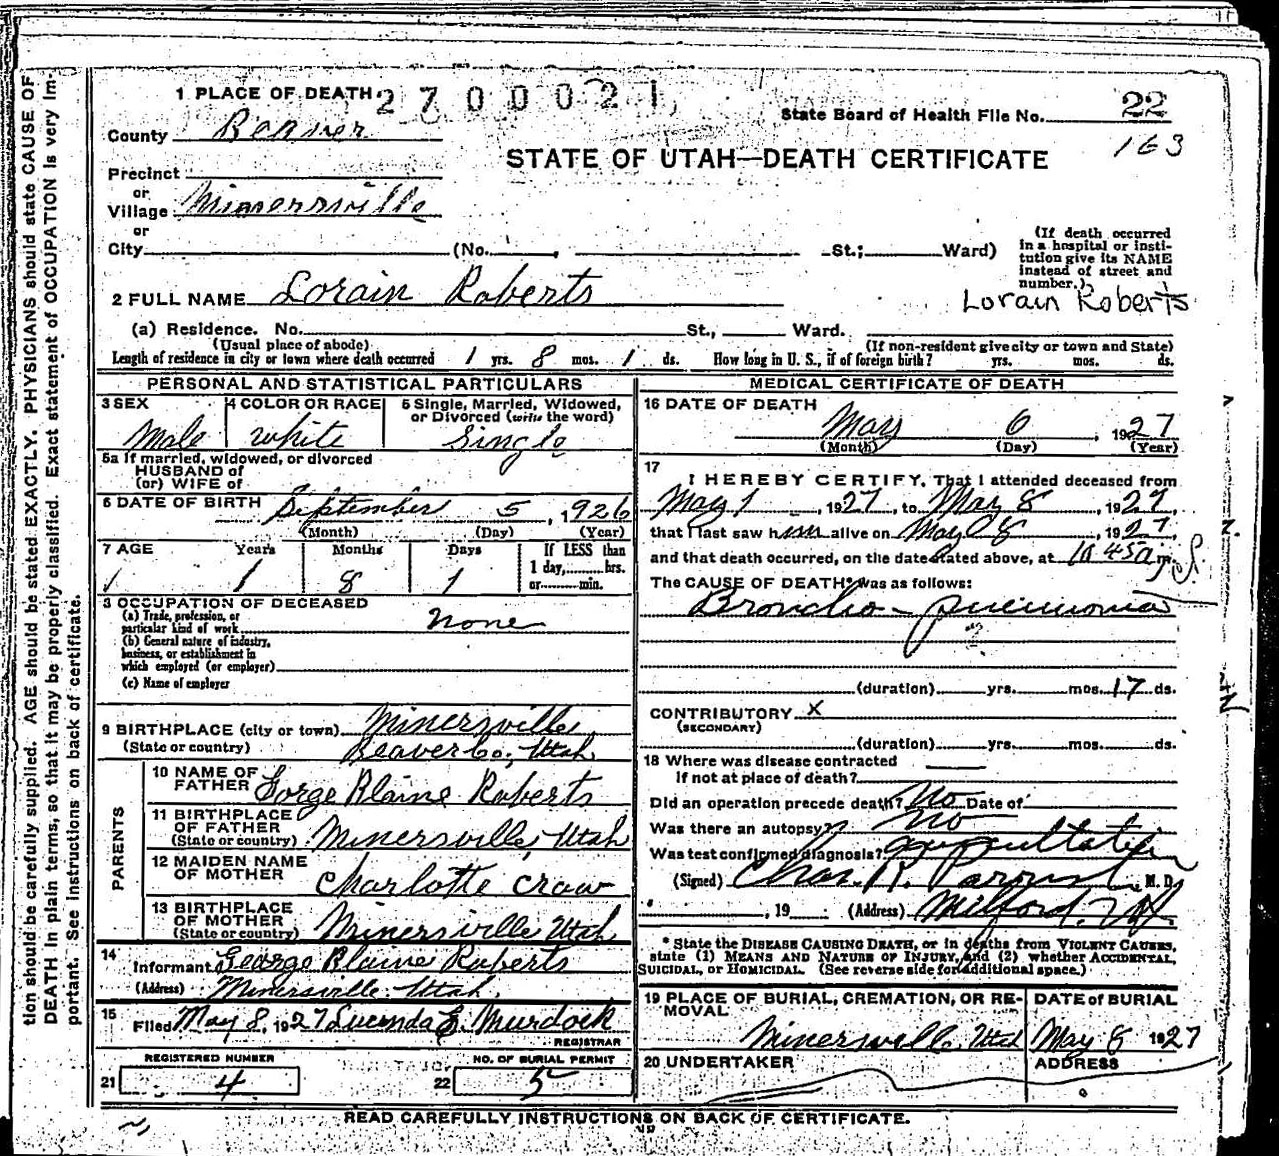 tion should be carefully supplied. AGE should be stated EXACTLY. PHYSICIANS should state CAUSE OF
DEATH in plain terms, so that it may be properly classified. Exact statement of OCCUPATION is very im-
portant. See instructions on back of certificate.
1 PLACE OF DEATH 2 7 0 0 0 2 1
State Board of Health File No. 22
163
County Beaver
STATE OF UTAH—DEATH CERTIFICATE
Precinct
or
Village Minersville
or
City (No. , St.; Ward)
(If death occurred
in a hospital or insti-
tution give its NAME
instead of street and
number.)
2 FULL NAME Lorain Roberts
Lorain Roberts
(a) Residence. No. St., Ward.
(Usual place of abode) (If non-resident give city or town and State)
Length of residence in city or town where death occurred 1 yrs. 8 mos. 1 ds. How long in U. S., if of foreign birth? yrs. mos. ds.
PERSONAL AND STATISTICAL PARTICULARS
3 SEX
Male
4 COLOR OR RACE
White
5 Single, Married, Widowed,
or Divorced (write the word)
Single
5a If married, widowed, or divorced
HUSBAND of
(or) WIFE of
6 DATE OF BIRTH September 5, 1926
(Month) (Day) (Year)
7 AGE Years Months Days
1 1 8 1
If LESS than
1 day, hrs.
or min.
8 OCCUPATION OF DECEASED
(a) Trade, profession, or
particular kind of work None
(b) General nature of industry,
business, or establishment in
which employed (or employer)
(c) Name of employer
9 BIRTHPLACE (city or town) Minersville
(State or country) Beaver Co., Utah
PARENTS
10 NAME OF
FATHER Gorge Blaine Roberts
11 BIRTHPLACE
OF FATHER
(State or country) Minersville, Utah
12 MAIDEN NAME
OF MOTHER Charlotte Craw
13 BIRTHPLACE
OF MOTHER
(State or country) Minersville Utah
14
Informant George Blaine Roberts
(Address) Minersville. Utah.
15
Filed May 8, 1927 Lucinda E. Murdock
REGISTRAR
REGISTERED NUMBER
21 4
NO. OF BURIAL PERMIT
22 5
MEDICAL CERTIFICATE OF DEATH
16 DATE OF DEATH
May 6, 1927
(Month) (Day) (Year)
17
I HEREBY CERTIFY, That I attended deceased from
May 1, 1927, to May 8, 1927
that I last saw him alive on May 8, 1927.
and that death occurred, on the date stated above, at 10 45a m.
The CAUSE OF DEATH* was as follows:
Broncho-pneumonia
(duration) yrs. mos. 17 ds.
CONTRIBUTORY X
(SECONDARY)
(duration) yrs. mos. ds.
18 Where was disease contracted
if not at place of death?
Did an operation precede death? No Date of
Was there an autopsy? no
Was test confirmed diagnosis? auscultation
(Signed) Chas. R. Parrish, M. D.
, 19 (Address) Milford. Ut.
* State the DISEASE CAUSING DEATH, or in deaths from VIOLENT CAUSES,
state (1) MEANS AND NATURE OF INJURY, and (2) whether ACCIDENTAL,
SUICIDAL, or HOMICIDAL. (See reverse side for additional space.)
19 PLACE OF BURIAL, CREMATION, OR RE-
MOVAL
Minersville, Utah
DATE of BURIAL
May 8 1927
20 UNDERTAKER
ADDRESS
READ CAREFULLY INSTRUCTIONS ON BACK OF CERTIFICATE.